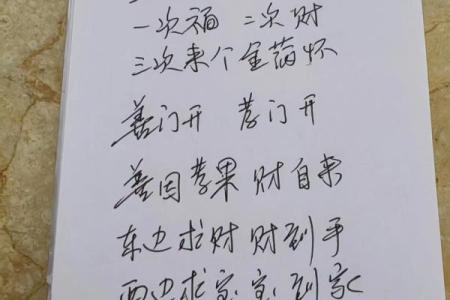 一次福 二次财
三次来个金药怀
善门开 孝门开
善因孝果 财自来
东边求财 财到手
西边求宝 宝到家